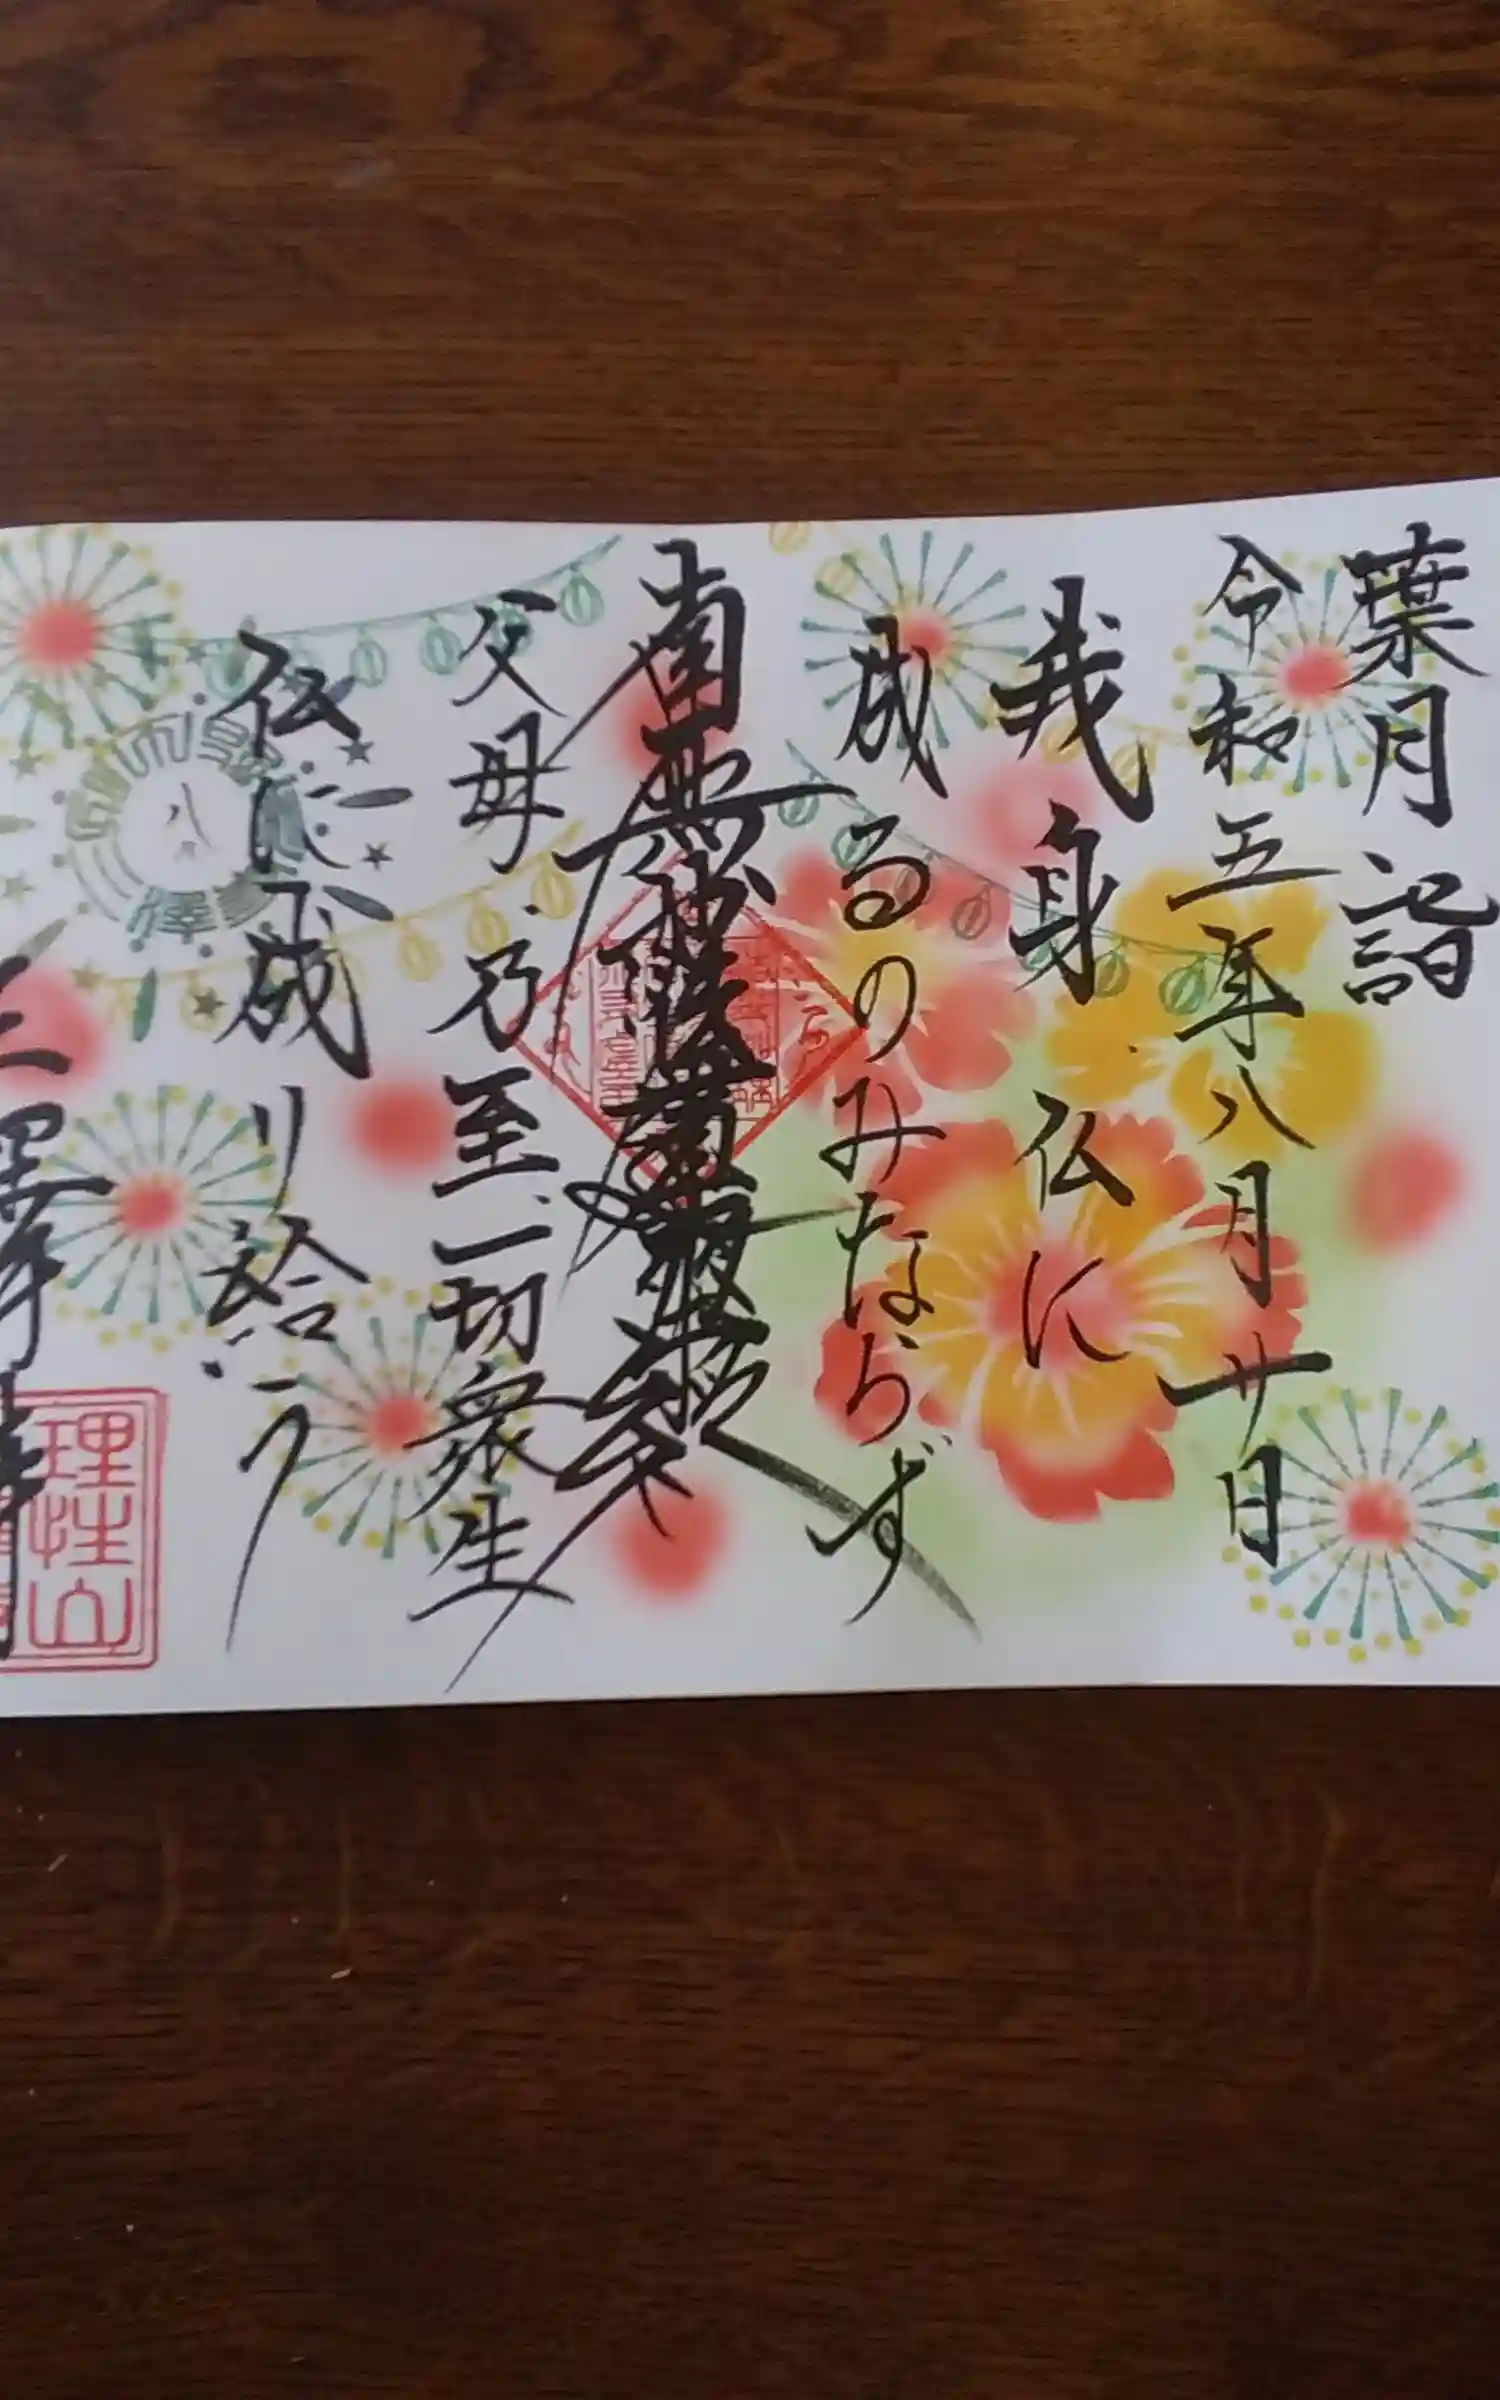 葉月詣
令和五年八月廿日
我身仏に
成るのみならず
南無妙法蓮華経
父母乃至一切衆生
仏に成り給う
理性山
八月